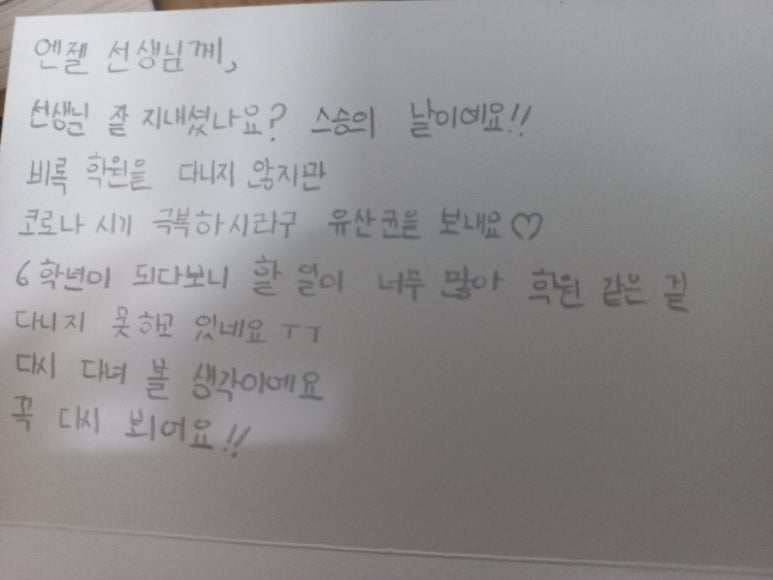 엔젤 선생님께,
선생님 잘 지내셨나요? 스승의 날이예요!!
비록 학원을 다니지 않지만
코로나 시기 극복하시라구 유산균을 보내요♡
6학년이 되다보니 할 일이 너무 많아 학원 같은 걸
다니지 못하고 있네요 ㅜㅜ
다시 다녀 볼 생각이에요
꼭 다시 뵈어요!!